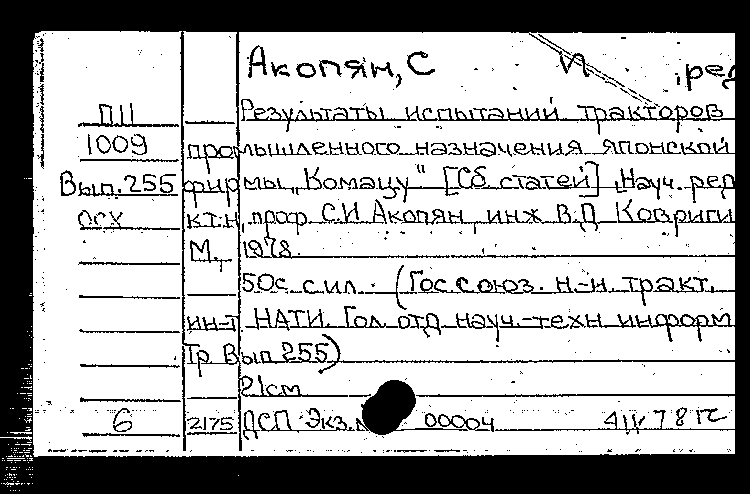 Акопян, С И , ред
П11 Результаты испытаний тракторов
1009 промышленного назначения японской
Вып. 255 фирмы „Комацу" [Сб статей] Науч. ред
осх к.т.н, проф. С.И Акопян, инж В.Д Ковриги
М., 1978.
50с с ил. (Гос. союз. н.-и. тракт.
ин-т НАТИ. Гол. отд науч.-техн. информ
Тр Вып 255)
21см
6 2175 ДСП Экз. 00004